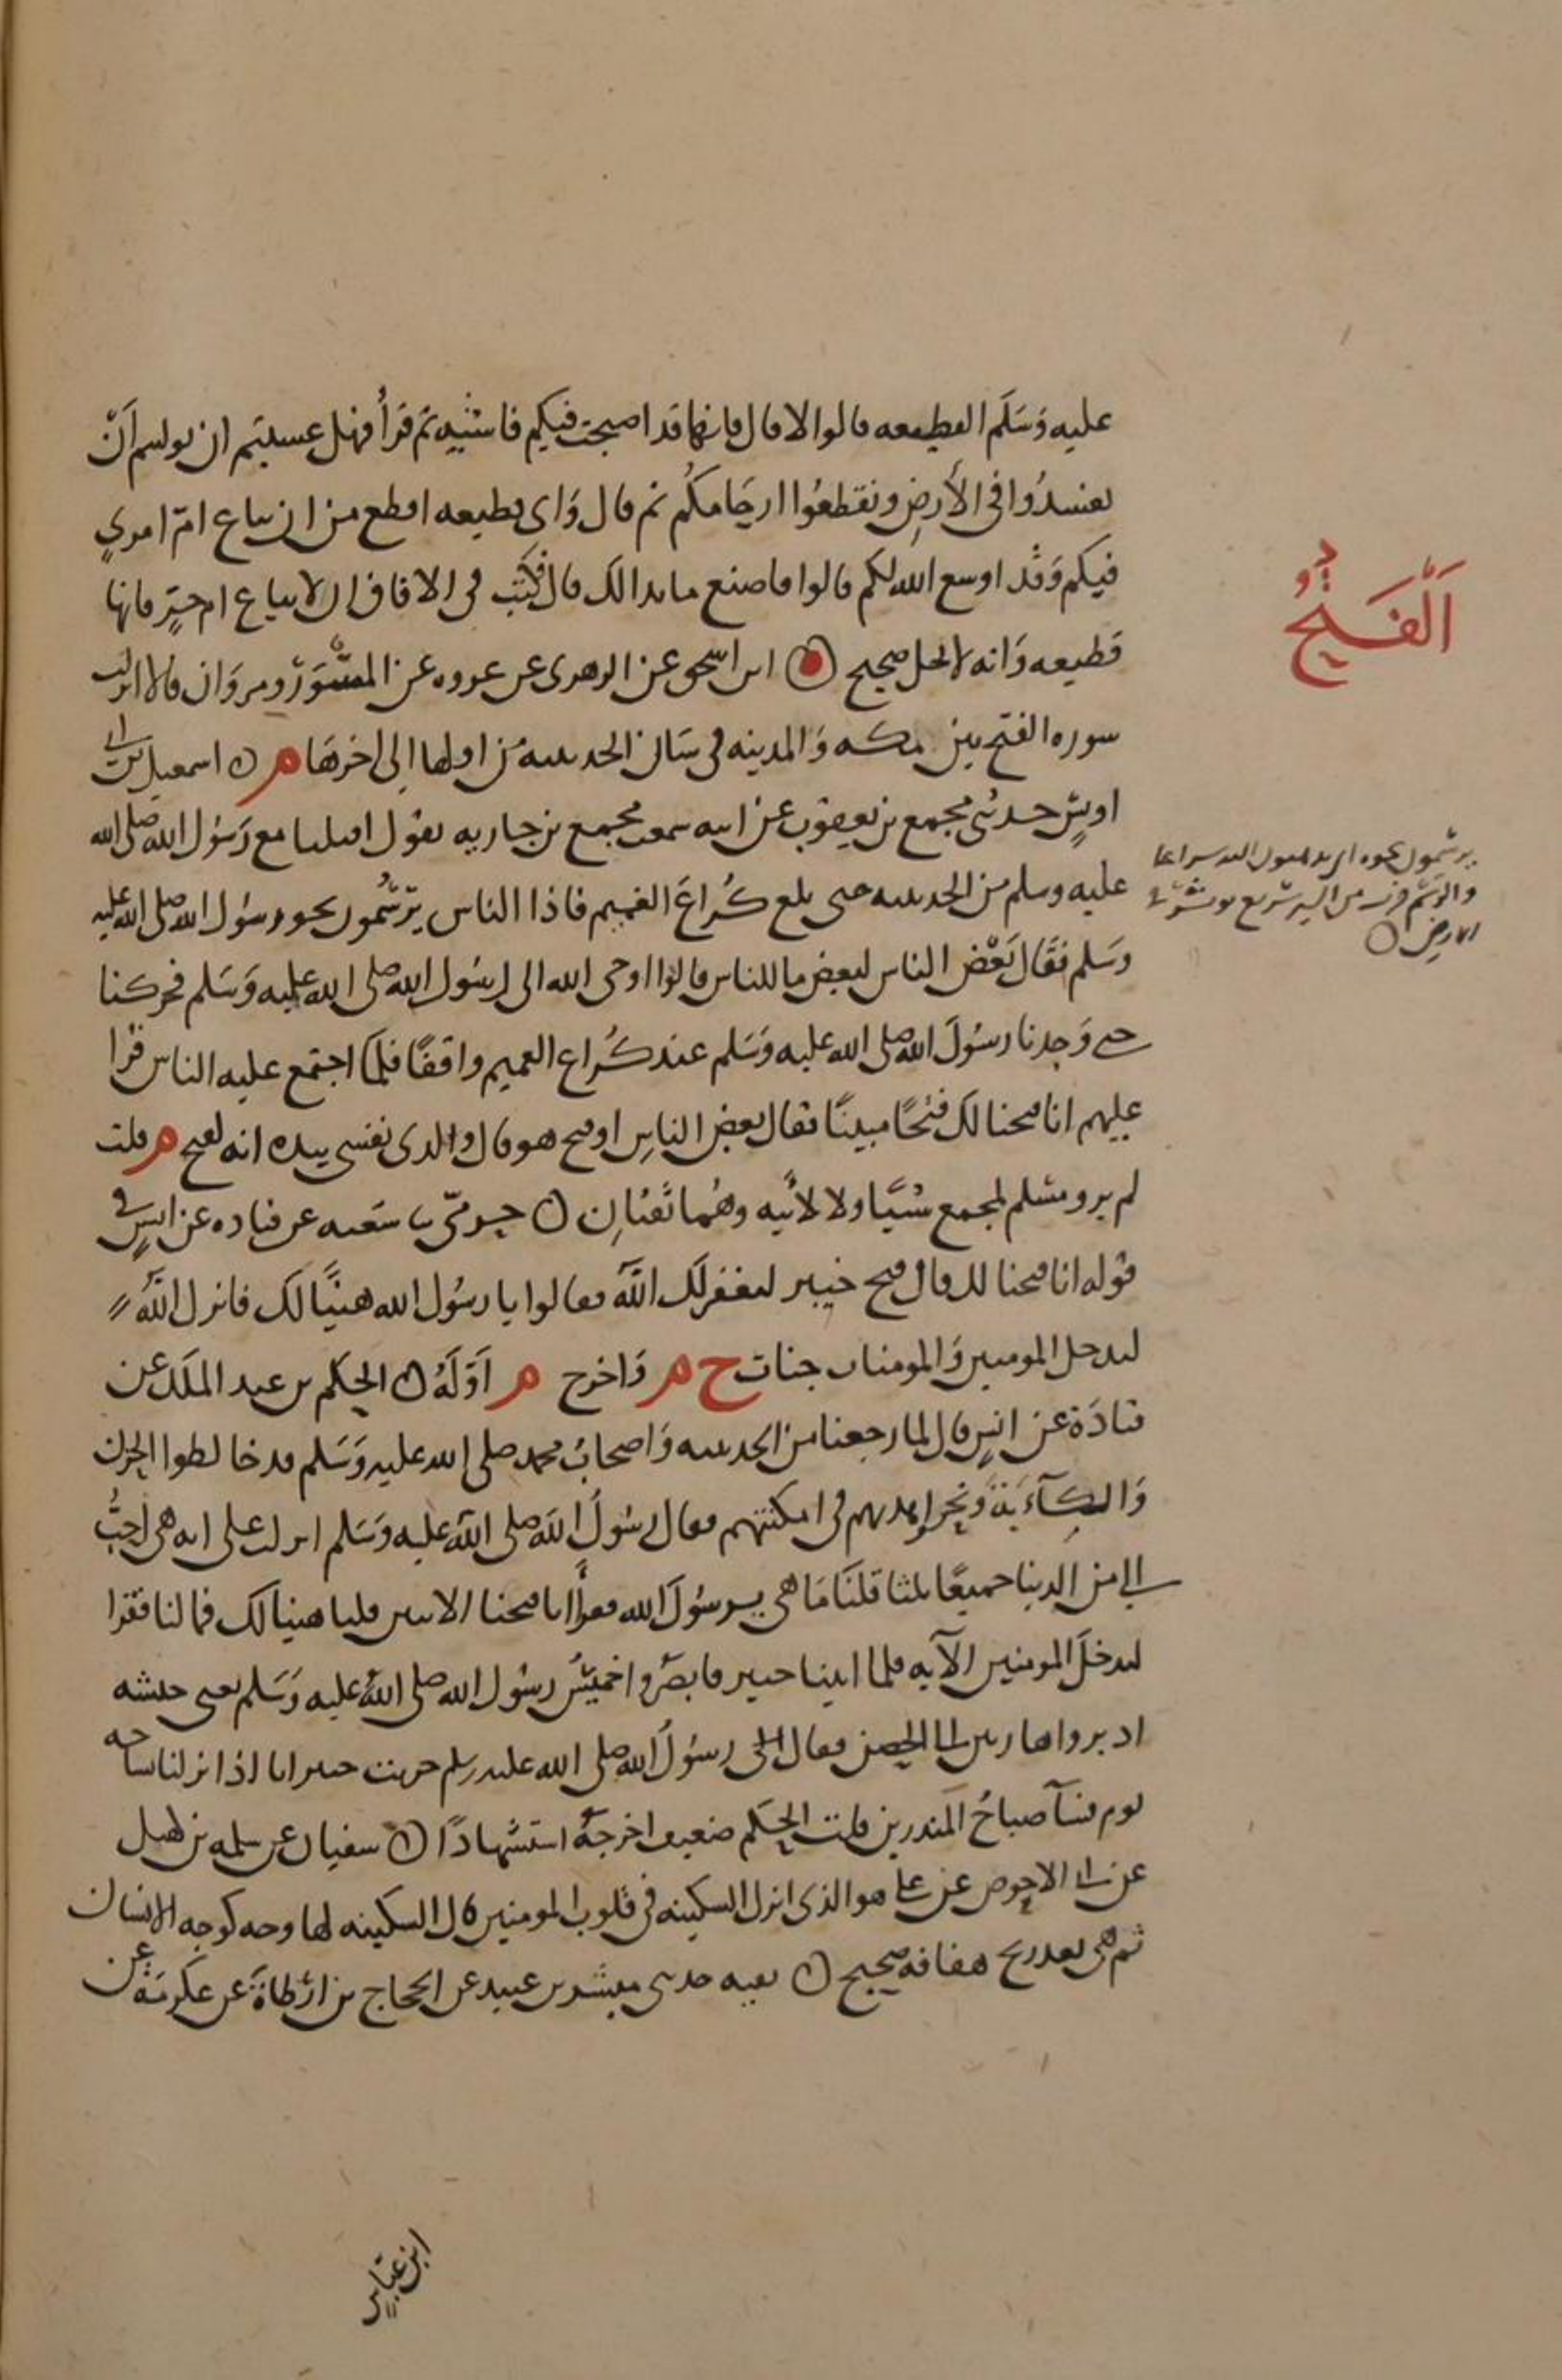 عليه وسلم القطيعه قالوا لا قال فانها قد اصبحت فيكم فاشيه ثم قرأ فهل عسيتم ان توليتم أن
تفسدُوا في الأرضِ وتقطعُوا ارحَامكُم ثم قال وَاى قطيعه اقطع من ان تباع امّ امرىٍ
فيكم وَقد اوسع الله لكم قالوا فاصنع ما بدا لك قال فكتب فى الافاق ان لا تباع ام حرٍ فانها
قطيعه وَانه لا يحل صحيح ابن اسحق عن الزهرى عن عروه عن المسْوَرْ ومروَان قالا انزلت
سوره الفتح بين مكه وَالمدينه فى شان الحديبيه من اولها الى اخرهَا م اسمعيل بن ابى
اويسٍ حدثنى مجمع بن يعقوب عن ابيه سمعت مجمع بن جاريه يقول اقبلنا مع رَسُول الله صلى الله
عليه وسلم من الحديبيه حتى بلغ كُراعَ الغميم فاذا الناس يَرْسُمون نحو رسُول الله صلى الله عليه
وَسَلم فقَال بَعْض الناس لبعض ما للناس قالوا اوحى الله الى رسُول الله صلى الله عليه وَسَلم فحركنا
حتى وَجدنا رسُولَ الله صلى الله عليه وَسَلم عند كُراع الغميم واقفًا فلمّا اجتمع عليه الناس قرا
عليهم انا فتحنا لك فتحًا مبينًا فقال بعض الناسِ اوفتح هو قال والذى نفسى بيده انه لفتح م قلت
لم يرو مسلم لمجمع شيًا ولا لأبيه وهُما ثقتانِ حرمى بن شعبه عن قتاده عن انسٍ فى
قوله انا فتحنا لك قال فتح خيبر ليغفر لك اللهُ فقالوا يا رسُول الله هنيًا لك فانزل اللهُ
ليدخل المومنين وَالمومنات جنات خ م وَاخرج م اَوّلَهُ الحكم بن عبد الملك عن
قتادَة عن انسٍ قال لما رجعنا من الحديبيه وَاصحابُ محمد صلى الله عليه وَسَلم قد خالطوا الحزن
وَالكآءَبَة وَنحروا هديهم فى امكنتهم فقال رسُولُ الله صلى الله عليه وَسَلم انزلت على ايه هى احَبُّ
الى من الدنيا جميعًا ثلثا قلنَا مَا هى يرسُولَ الله فقرأ انا فتحنا الايتين قلنا هنيا لك فما لنا فقرا
ليدخلَ المومنين الآيه فلما اتينا خيبر فابصرُوا خميسُ رسُول الله صلى اللهُ عليه وَسَلم يعنى جيشه
ادبروا هاربين الى الحصن فقال رسُولُ الله صلى الله عليه وسلم خربت خيبر انا اذا نزلنا ساحه
قوم فسآ صباحُ المنذرين قلت الحكم ضعيف اخرجهُ استشهادًا سفيان عن سلمه بن كهيل
عن ابى الاحوص عن على هو الذى انزل السكينه فى قلوب المومنين قال السكينه لها وجه كوجه الانسان
ثم هى بعد ريح هفافه صحيح بقيه حدثنى مبشر بن عبيد عن الحجاج بن ارْطاةَ عن عكرمَة عن
اَلْفَتحُ
يرسمون نحوه اى يذهبون اليه سراعا
والرسم ضرب من السير سريع يوثر فى
الارض
ابن عباسٍ